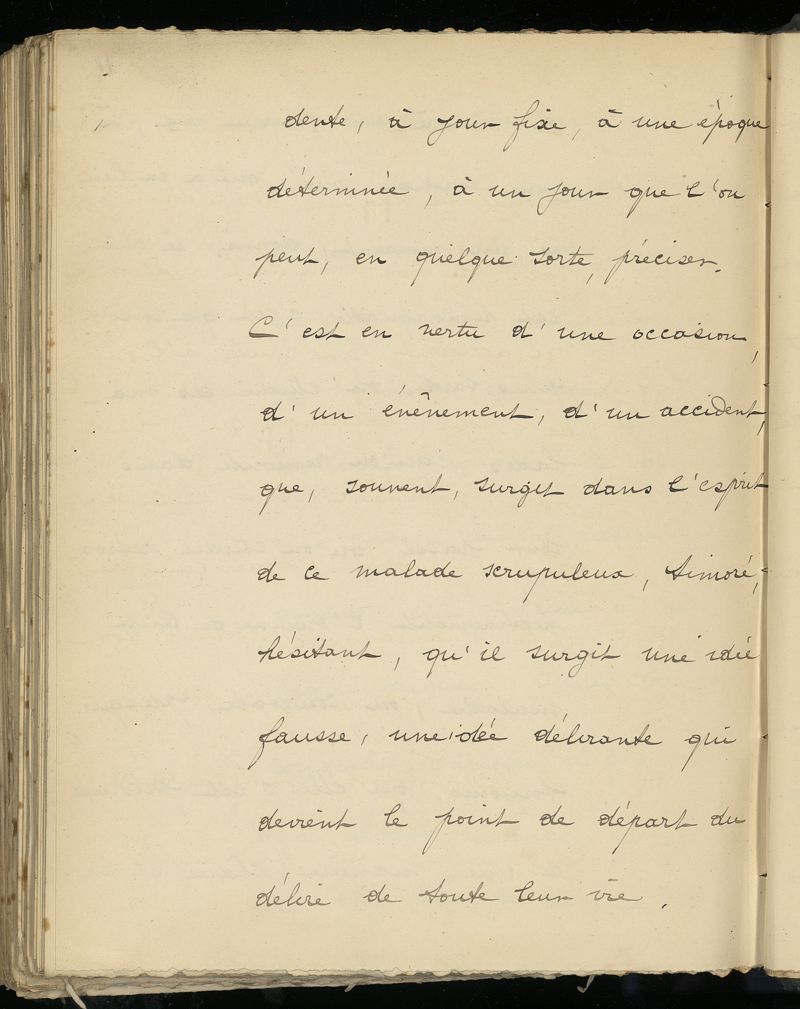 dente, à jour fixe, à une époque
déterminée, à un jour que l'on
peut, en quelque sorte, préciser.
C'est en vertu d'une occasion,
d'un évênement, d'un accident,
que, souvent, surgit dans l'esprit
de ce malade scrupuleux, timoré,
hésitant, qu'il surgit une idée
fausse, une idée délirante qui
devient le point de départ du
délire de toute leur vie.